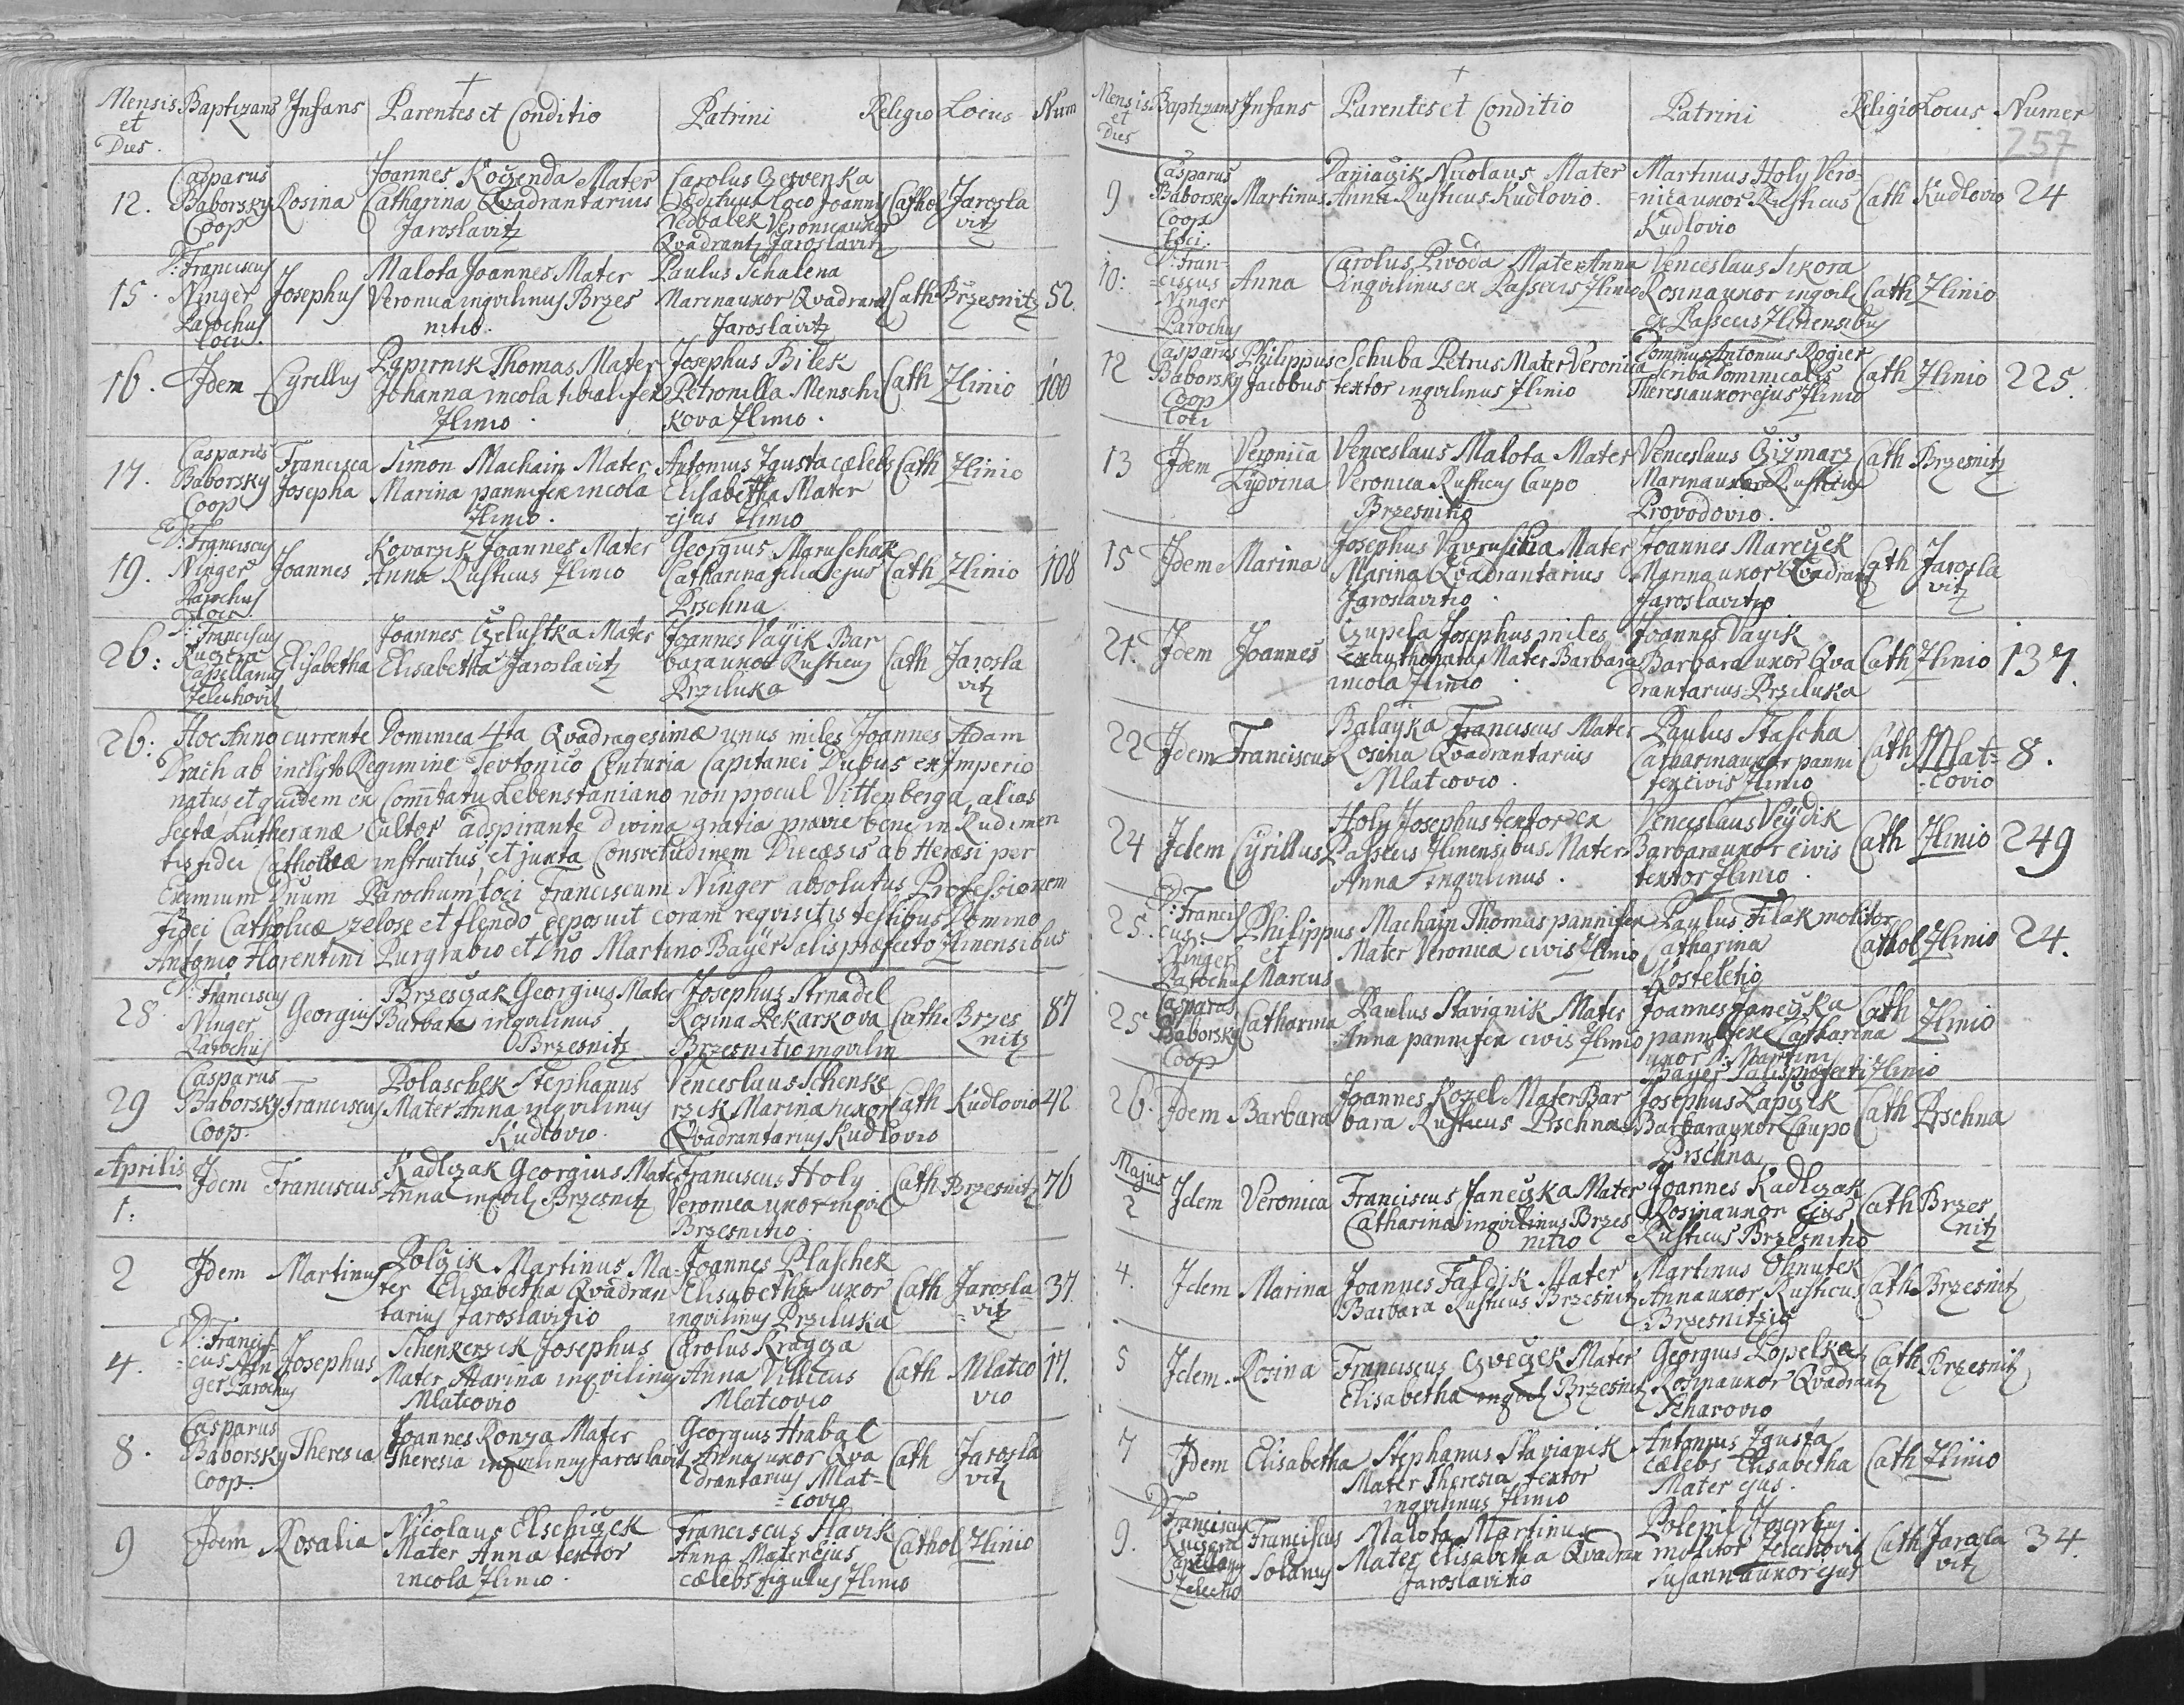 Mensis et Dies. Baptizans Infans Parentes et Conditio Patrini Religio Locus Num
12. Casparus Baborsky Coop Rosina
Joannes Koczenda Mater
Catharina Qvadrantarius
Jaroslavitz
Carolus Czervenka
Ædituus Loco Joannis
Nedbalek Veronica uxor
Qvadrantz Jaroslavitz
Cathol Jaroslavitz
15. D: Franciscus Ninger Parochus loci. Josephus
Malota Joannes Mater
Veronica inqvilinus Brzes
nitio.
Paulus Schalena
Marina uxor Qvadrant
Jaroslavitz
Cath Brzesnitz 52.
16. Idem Cyrillus
Papirnik Thomas Mater
Johanna incola tibialifex
Zlinio.
Josephus Bilek
Petronilla Menschi
kova Zlinio.
Cath Zlinio 100
17. Casparus Baborsky Coop Francisca Josepha
Simon Machain Mater
Marina pannifex incola
Zlinio.
Antonius Zgusta cælebs
Elisabetha Mater
ejus Zlinio
Cath Zlinio
19. D: Franciscus Ninger Parochus Loci Joannes
Kovarzik Joannes Mater
Anna Rusticus Zlinio
Georgius Maruschak
Catharina filia ejus
Prschna
Cath Zlinio 108
26: D: Franciscus Kuczera Capellanus Zelechovit Elisabetha
Joannes Czelustka Mater
Elisabetha Jaroslavitz
Joannes Vayik Bar
bara uxor Rusticus
Prziluka
Cath Jaroslavitz
26: Hoc Anno currente Dominica 4ta Qvadragesimæ unus miles Joannes Adam
Drach ab inclyto Regimine Tevtonico Centuria Capitanei Dubus ex Imperio
natus, et quidem ex Comitatu Lebenstaniano non procul Vittenberga, alias
Sectæ Lutheranæ Cultor adspirante divina gratia prævie bene in Rudimen
tis fidei Catholicæ instructus, et juxta Consvetudinem Diœcesis ab Hæresi per
Eximium Dnum Parochum loci Franciscum Ninger absolutus, Professionem
Fidei Catholicæ zelose et flendo deposuit coram reqvisitis testibus Domino
Antonio Florentini Purgrabio et Dno Martino Bayer Salis præfecto Zlinensibus
28 D: Franciscus Ninger Parochus Georgius
Brzesczak Georgius Mater
Barbara inqvilinus
Brzesnitz
Josephus Strnadel
Rosina Pekarkova
Brzesnitio inqvilin
Cath Brzesnitz 87
29 Casparus Baborsky Coop. Franciscus
Polaschek Stephanus
Mater Anna inqvilinus
Kudlovio.
Venceslaus Schenke
rzik Marina uxor
Qvadrantarius Kudlovio
Cath Kudlovio 42
Aprilis
1. Idem Franciscus
Kadlczak Georgius Mater
Anna inqvil Brzesnitz
Franciscus Holy
Veronica uxor inqvil
Brzesnitio
Cath Brzesnitz 76
2 Idem Martinus
Polczik Martinus Ma-
ter Elisabetha Qvadran
tarius Jaroslavitio
Joannes Plaschek
Elisabetha uxor
inqvilinus Prziluka
Cath Jaroslavitz 37
4. D: Franciscus Ninger Parochus Josephus
Schenkerzik Josephus
Mater Marina inqvilinus
Mlatcovio
Carolus Kragcza
Anna Villicus
Mlatcovio
Cath Mlatcovio 17.
8. Casparus Baborsky Coop. Theresia
Joannes Konza Mater
Theresia inqvilinus Jaroslavit
Georgius Hrabal
Anna uxor Qva
drantarius Mlat-
covio
Cath Jaroslavitz
9 Idem Rosalia
Nicolaus Elschiczek
Mater Anna textor
incola Zlinio.
Franciscus Slavik
Anna Mater Ejus
cælebs figulus Zlinio
Cathol Zlinio
Mensis et Dies Baptizans Infans Parentes et Conditio Patrini Religio Locus Numer
257
9 Casparus Baborsky Coop loci. Martinus
Paniaczik Nicolaus Mater
Anna Rusticus Kudlovio.
Martinus Holy Vero-
nica uxor Rusticus
Kudlovio
Cath Kudlovio 24
10: D: Franciscus Ninger Parochus Anna
Carolus Pivoda Mater Anna
inqvilinus ex Passecis Zlinio
Venceslaus Sikora
Rosina uxor inqvil
ex Passecis Zlinensibus
Cath Zlinio
12 Casparus Baborsky Coop Loci Philippus Jacobus
Schuba Petrus Mater Veronica
textor inqvilinus Zlinio
Dominus Antonius Rogier
Scriba Dominicalis
Theresia uxor ejus Zlinio
Cath Zlinio 225.
13 Idem Veronica Lydvina
Venceslaus Malota Mater
Veronica Rusticus Caupo
Brzesnitio
Venceslaus Czizmarz
Marina uxor Rusticus
Provodovio.
Cath Brzesnitz
15 Idem Marina
Josephus Vavruschka Mater
Marina Qvadrantarius
Jaroslavitio.
Joannes Marczek
Marina uxor Qvadrant
Jaroslavitio
Cath Jaroslavitz
21. Idem Joannes
Czupela Josephus miles
exauthoratus Mater Barbara
incola Zlinio
Joannes Vayik
Barbara uxor Qva
drantarius Prziluka
Cath Zlinio 137.
22 Idem Franciscus
Balayka Franciscus Mater
Rosina Qvadrantarius
Mlatcovio.
Paulus Stascha
Catharina uxor panni
fex civis Zlinio
Cath Mlat=covio 8.
24 Idem Cyrillus
Holy Josephus textor ex
Passecis Zlinensibus Mater
Anna inqvilinus.
Venceslaus Veydik
Barbara uxor civis
textor Zlinio.
Cath Zlinio 249
25. D: Franciscus Ninger Parochus Philippus et Marcus
Machain Thomas pannifex
Mater Veronica civis Zlinio
Paulus Filak molitor
Catharina
Kosteletio
Cathol Zlinio 24.
25 Casparus Baborsky Coop Catharina
Paulus Stavianik Mater
Anna pannifex civis Zlinio
Joannes Janeczka
pannifex Catharina
uxor D: Martini
Bayer Salis præfecti Zlinio
Cath Zlinio
26. Idem Barbara
Joannes Kozel Mater Bar
bara Rusticus Prschna
Josephus Lapczik
Barbara uxor Caupo
Prschna
Cath Prschna
Majus
2 Idem Veronica
Franciscus Janeczka Mater
Catharina inqvilinus Brzes
nitio
Joannes Kadlczak
Rosina uxor Ejus
Rusticus Brzesnitio
Cath Brzesnitz
4. Idem Marina
Joannes Faldik Mater
Barbara Rusticus Brzesnitz
Martinus Ohnutek
Anna uxor Rusticus
Brzesnitzio
Cath Brzesnitz
5 Idem Rosina
Franciscus Czveczek Mater
Elisabetha inqvil Brzesnitz
Georgius Popelka
Rosina uxor Qvadrant
Scharovio
Cath Brzesnitz
7 Idem Elisabetha
Stephanus Stavianik
Mater Theresia textor
inqvilinus Zlinio
Antonius Zgusta
cælebs Elisabetha
Mater ejus.
Cath Zlinio
9. D: Franciscus Kuczera Capellanus Zelechio Franciscus Solanus
Malota Martinus
Mater Elisabetha Qvadran
Jaroslavitio
molitor Zelechovit
Susanna uxor ejus
Cath Jaroslavitz 34.